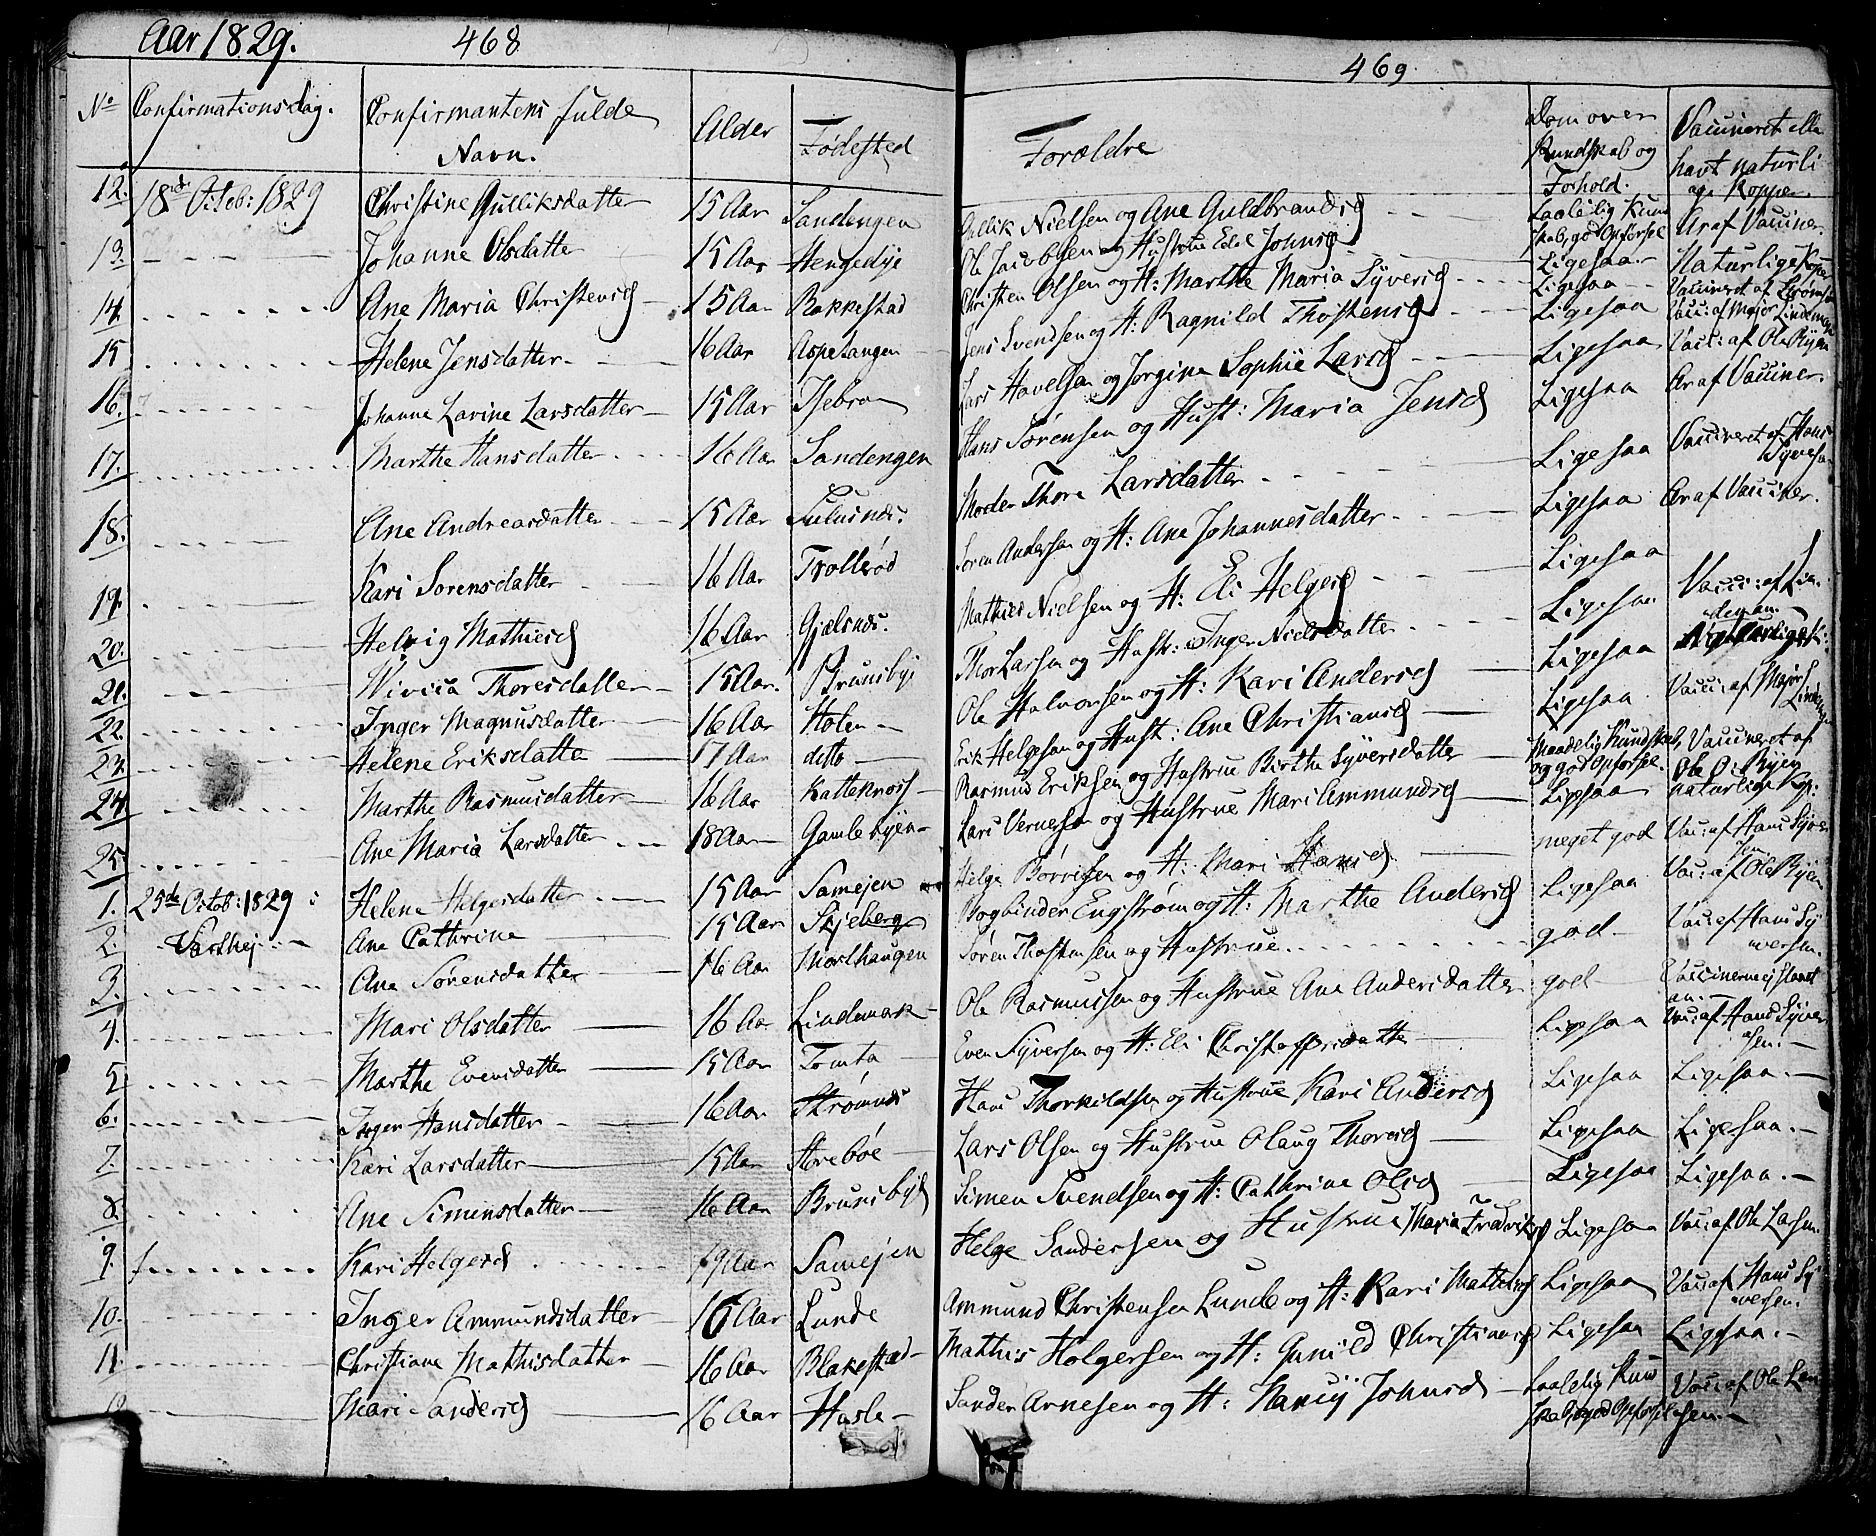 Aar 1829. 468
No Confirmationsdag. Confirmantens fulde Navn. Alder Fødested
12. 18de Octob: 1829 Christine Gulliksdatter 15 Aar Sandengen
13. Johanne Olsdatter 15 Aar Hengedye
14. Ane Maria Christensd 15 Aar Rakkestad
15 Helene Jensdatter 16 Aar Aspetangen
16. Johanne Lavine Larsdatter 15 Aar Isebro
17. Marthe Hansdatter 16 Aar Sandengen
18. Ane Andreasdatter 15 Aar
Kari Sorensdatter 16 Aar Trollerød
19. Helvig Mathiesd 16 Aar Gjælsnæs.
20. Wivica Thoresdatter 15 Aar. Brunsbye
21. Inger Magnusdatter 16 Aar Holen
22. Helene Eriksdatter 17 Aar ditto
23. Marthe Rasmusdatter 16 Aar Katteknos
24. Ane Maria Larsdatter 18 Aar Gamlebyen
25.
1. 25de Octob: 1829 Helene Helgesdatter 15 Aar Samejen
2. Ane Cathrine 15 Aar Skjeberg
3. Ane Sørensdatter 16 Aar Morthaugen
4. Mari Olsdatter 16 Aar Lindemark
5 Marthe Evensdatter 15 Aar Tomta
6. Inger Hansdatter 16 Aar Strømnæs
7. Kari Larsdatter 15 Aar Storebøe
8. Ane Simensdatter 16 Aar Brunsbye
9. Kari Helgesd 19 Aar Samejen
10. Inger Ammundsdatter 16 Aar Lunde
11. Christiane Mathisdatter 16 Aar Blakestad
Mari Sandersd 16 Aar Hasle
469
Forældre Dom over Kundskab og Forhold. Vacuneret eller havt naturlige Kopper
Gullik Nielsen og Ane Guldbrandsd Taalelig Kundskab, god Opførsel Ar af Vacciner.
Ole Jacobsen og Hustrue Edel Johnsd Ligesaa Naturlige Kopper
Christen Olsen og H: Marthe Maria Syversd Ligesaa Vaccineret af
Jens Svendsen og H: Ragnild Thostensd Ligesaa Vacc: af Major Lindeman
Lars Havelsen og Jørgine Sophie Larsd Ligesaa Vacc: af Ole Ryen
Hans Sørensen og Hust: Maria Jensd Ligesaa Ar af Vacciner.
Moder Thore Larsdatter Ligesaa Vaccineret af Hans Syvers.
Soren Andersen og H: Ane Johannesdatter Ligesaa Ar af Vacciner.
Mathies Nielsen og H: Eli Helgesd Ligesaa
Thor Larsen og Hustr: Inger Nielsdatter Ligesaa Vacci: af Lindeman
Ole Halvorsen og H: Kari Andersd Ligesaa
Erik Helgesen og Hust: Ane Christiansd Ligesaa Vacc: af Major Lindeman
Rasmus Eriksen og Hustrue Birthe Syversdatter Maadelig Kundskab, og god Opførsel. Vaccineret af Ole O: Ryen
Lars Vernesen og Hustrue Mari Ammundsd Ligesaa naturlige Kop:
Helge Børresen og H: Mari Hansd meget god Vac: af Hans Syversen
Bogbinder Engstrøm og H: Marthe Andersd Ligesaa Vac: af Ole Ryen
Søren Thostensen og Hustrue god Vac: af Hans Syversen.
Ole Rasmussen og Hustrue Ane Andersdatter god
Even Syversen og H: Eli Christoffersdatter Ligesaa Vac: af Hans Syversen.
Hans Thorkildsen og Hustrue Kari Andersd Ligesaa Ligesaa.
Lars Olsen og Hustrue Olaug Thoresd Ligesaa Ligesaa.
Simen Svendsen og H: Cathrine Olsd Ligesaa Ligesaa.
Helge Sandersen og Hustrue Maria Fredriksd Ligesaa Vac: af Ole Larsen.
Ammund Christensen Lunde og H: Kari Mathisd Ligesaa Vac: af Hans Syversen.
Mathis Holgersen og H: Gunild Christiansd Ligesaa Ligesaa.
Sander Arnesen og H: Johnsd Taalelig Kundskab, og god Opførsel Vac: af Ole Larsen.